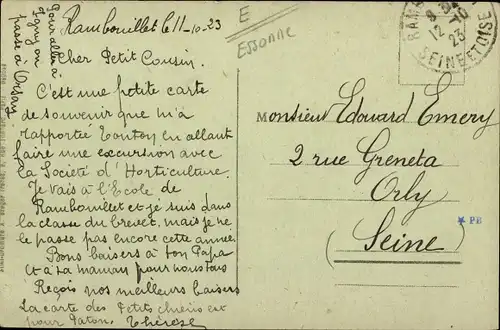 Rambouillet le 11-10-23
Pour aller à
Igny on
passe à Orsay
Cher Petit Cousin.
C'est une petite carte
de souvenir que m'a
rapportée Tonton en allant
faire une excursion avec
la Société d'Horticulture.
Je vais à l'Ecole de
Rambouillet et je suis dans
la classe du brevet, mais je ne
le passe pas encore cette année.
Bons baisers à ton Papa
et à ta maman pour nous tous
Reçois nos meilleurs baisers
La carte des Petits chiens est
pour Paton. Thérèse
E
Essonne
12 -10
23
SEINE ET OISE
Monsieur Edouard Emery
2 rue Greneta
Orly
(Seine)
PB